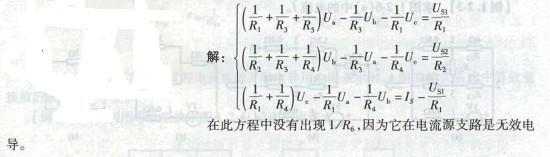 (1/R₁ + 1/R₃ + 1/R₅)Uₐ − 1/R₃ U_b − 1/R₁ U_c = U_S1/R₁
解: (1/R₂ + 1/R₃ + 1/R₄)U_b − 1/R₃ Uₐ − 1/R₄ U_c = U_S2/R₂
(1/R₁ + 1/R₄)U_c − 1/R₁ Uₐ − 1/R₄ U_b = I_S − U_S1/R₁
在此方程中没有出现 1/R₆,因为它在电流源支路是无效电
导。